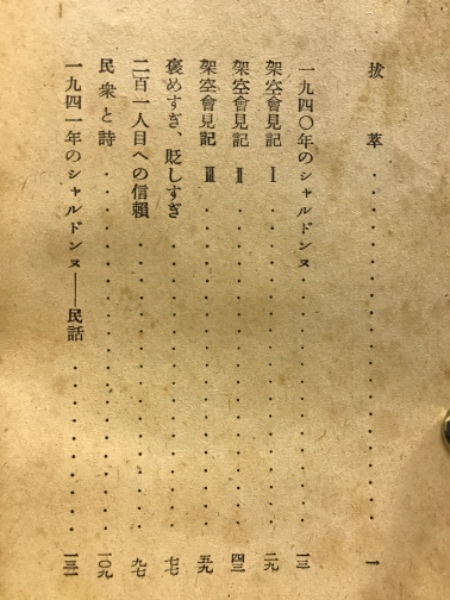 拔萃・・・・・・・・・・・・・・・・・・・・一
一九四〇年のシャルドンヌ・・・・・・・・・・・・・一三
架空會見記 Ⅰ・・・・・・・・・・・・・・・・二九
架空會見記 Ⅱ・・・・・・・・・・・・・・・・四三
架空會見記 Ⅲ・・・・・・・・・・・・・・・・五九
褒めすぎ、貶しすぎ・・・・・・・・・・・・・・・七七
二百一人目への信賴・・・・・・・・・・・・・・・九七
民衆と詩・・・・・・・・・・・・・・・・・・一〇九
一九四一年のシャルドンヌ——民話・・・・・・・・・一三一